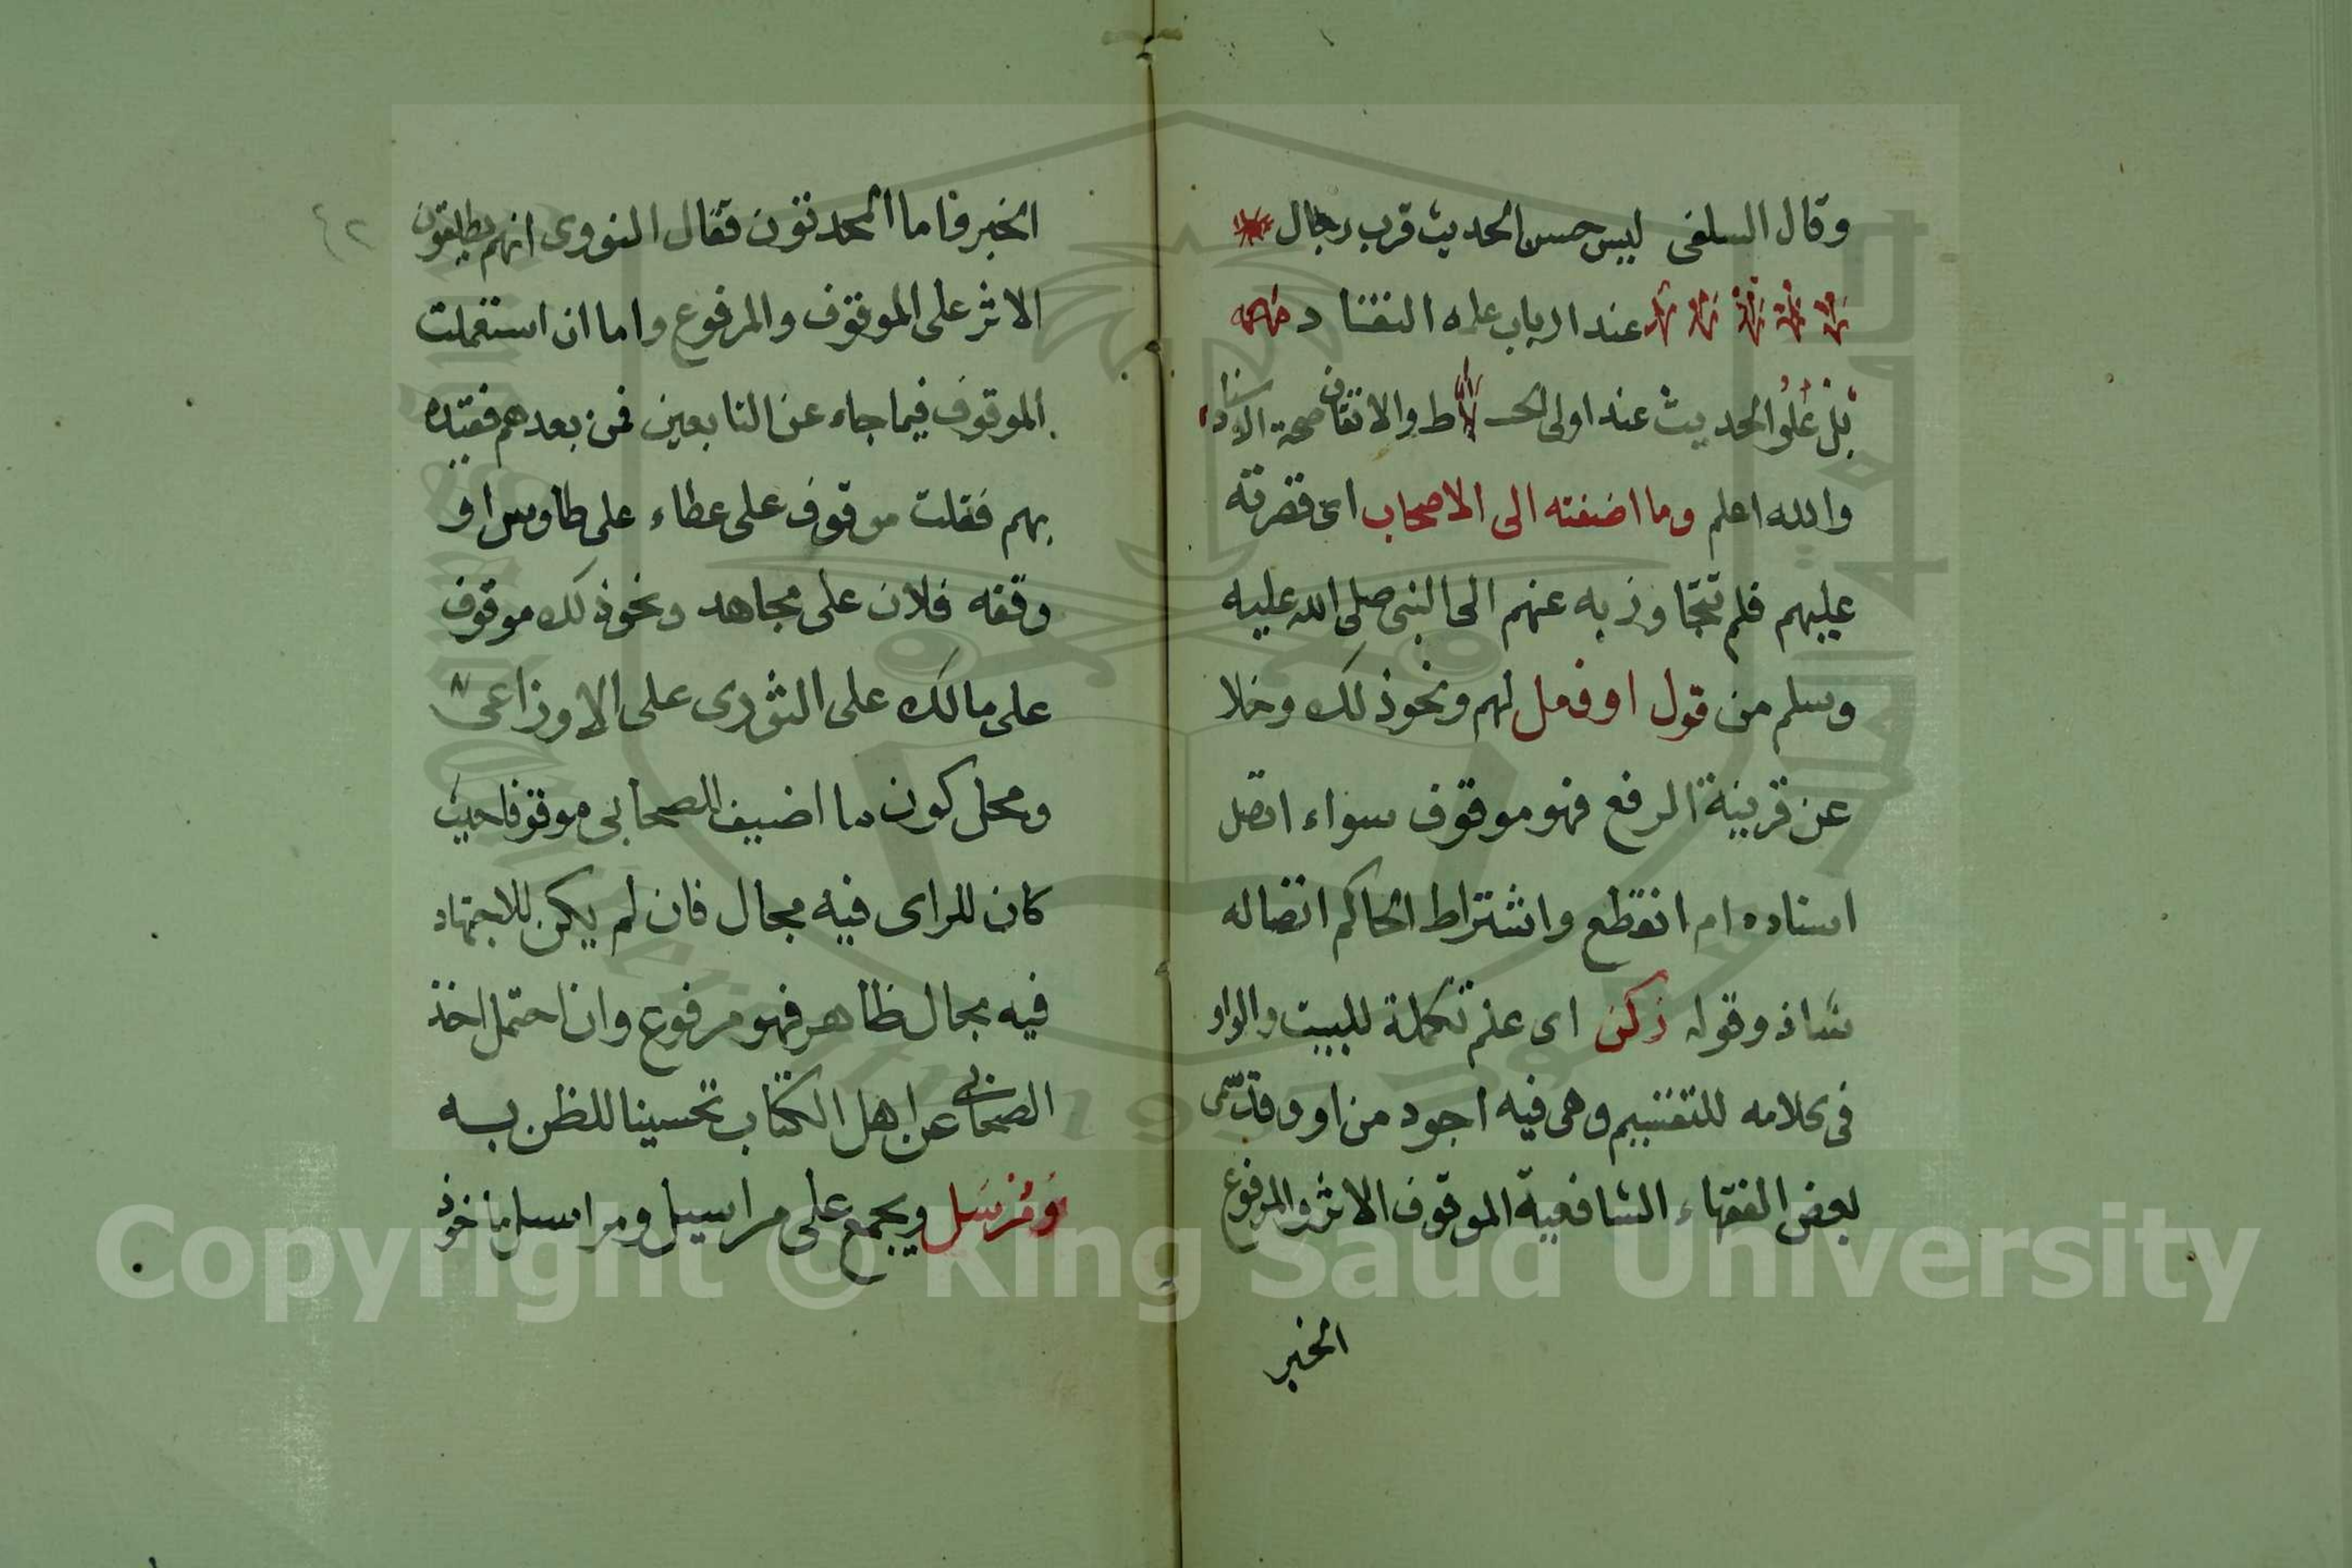 وقال السلفي ليس حسن الحديث قرب رجال
عند ارباب علمه النقاد
بل علو الحديث عند اولى الحفاظ والاتقان صحة الاسناد
والله اعلم وما اضفته الى الاصحاب اى قصرته
عليهم فلم تتجاوز به عنهم الى النبى صلى الله عليه
وسلم من قول او فعل لهم ونحو ذلك وخلا
عن قرينة الرفع فهو موقوف سواء اتصل
اسناده ام انقطع واشتراط الحاكم اتصاله
شاذ وقوله زكن اى علم تكملة للبيت والواو
فى كلامه للتقسيم وهى فيه اجود من او وقد سمى
بعض الفقهاء الشافعية الموقوف الاثر والمرفوع
الخبر
الخبر فاما المحدثون فقال النووى انهم يطلقون
الاثر على الموقوف والمرفوع واما ان استعملت
الموقوف فيما جاء عن التابعين فمن بعدهم فقيده
بهم فقلت موقوف على عطاء على طاوس او
وقفه فلان على مجاهد ونحو ذلك موقوف
على مالك على الثورى على الاوزاعى
ومحل كون ما اضيف للصحابى موقوفا حيث
كان للراى فيه مجال فان لم يكن للاجتهاد
فيه مجال ظاهر فهو مرفوع وان احتمل اخذ
الصحابى عن اهل الكتاب تحسينا للظن به
ومرسل ويجمع على مراسيل ومراسل ماخوذ
٤٢
Copyright © King Saud University